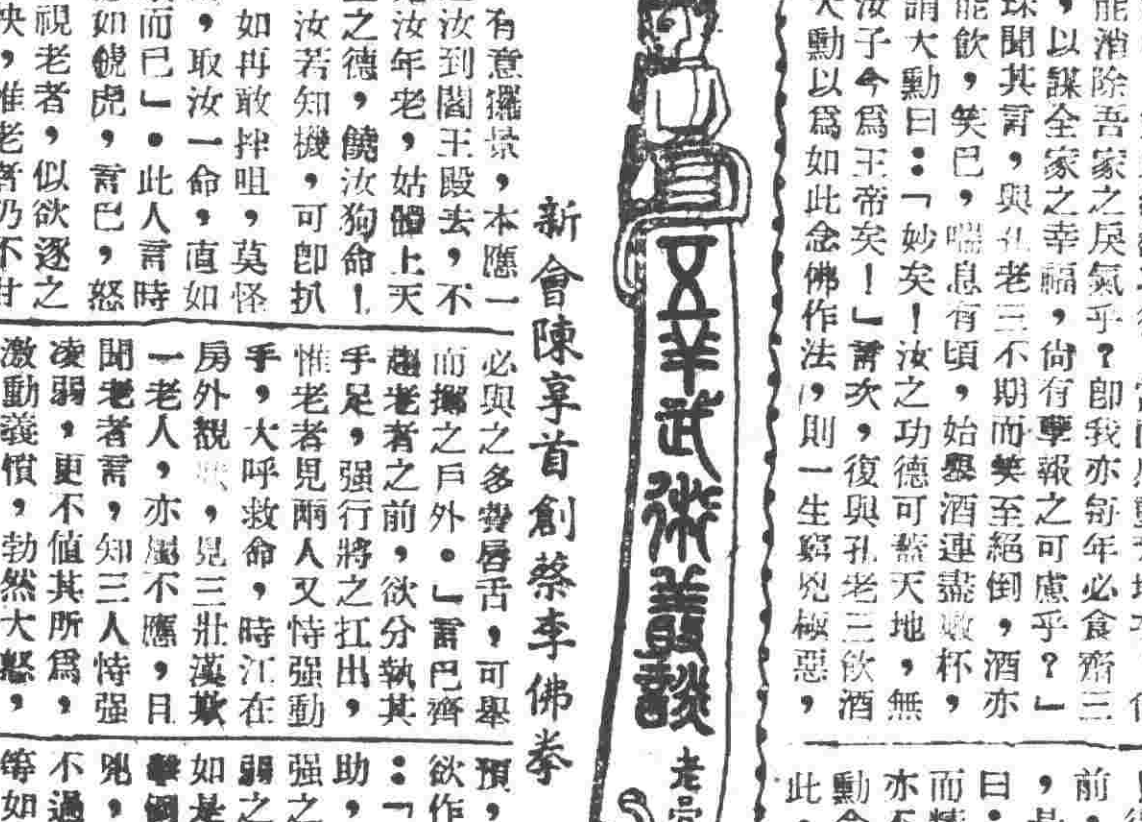 能消除吾家之戾氣乎？卽我亦每年必食齋三
，以謀全家之幸福，尙有孽報之可慮乎？」
聞其言，與孔老三不期而笑至絕倒，酒亦
能飲，笑已，喘息有頃，始舉酒連盡數杯，
謂大勳曰：「妙矣！汝之功德可蓋天地，無
汝子今爲王帝矣！」言次，復與孔老三飲酒
大勳以爲如此念佛作法，則一生窮兇極惡，
前
，
曰：
而精
亦不
勳
此
五羊武術叢談
老
新會陳享首創蔡李佛拳
有意攞景，本應一
汝到閻王殿去，不
汝年老，姑體上天
之德，饒汝狗命！
汝若知機，可卽扒
如再敢拌咀，莫怪
，取汝一命，直如
而已」。此人言時
如餓虎，言已，怒
視老者，似欲逐之
，惟老者仍不甘
必與之多費唇舌，可舉
而擲之戶外。」言已齊
趨老者之前，欲分執其
手足，强行將之扛出，
惟老者見兩人又恃强動
手，大呼救命，時江在
房外觀，見三壯漢欺
一老人，亦屬不應，且
聞老者言，知三人恃强
凌弱，更不值其所爲，
激動義憤，勃然大怒，
預，
欲作
：「
助，
强之
弱之
如是
兇，
不過
等如